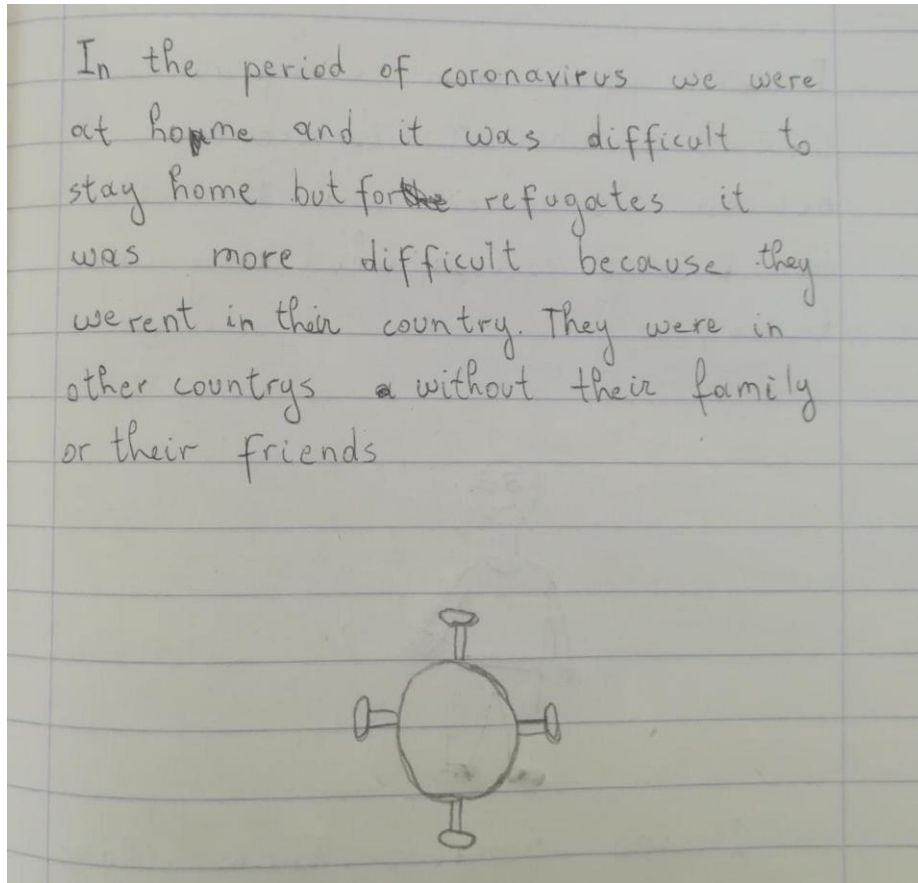 In the period of coronavirus we were
at home and it was difficult to
stay home but for refugates it
was more difficult because they
werent in their country. They were in
other countrys without their family
or their friends